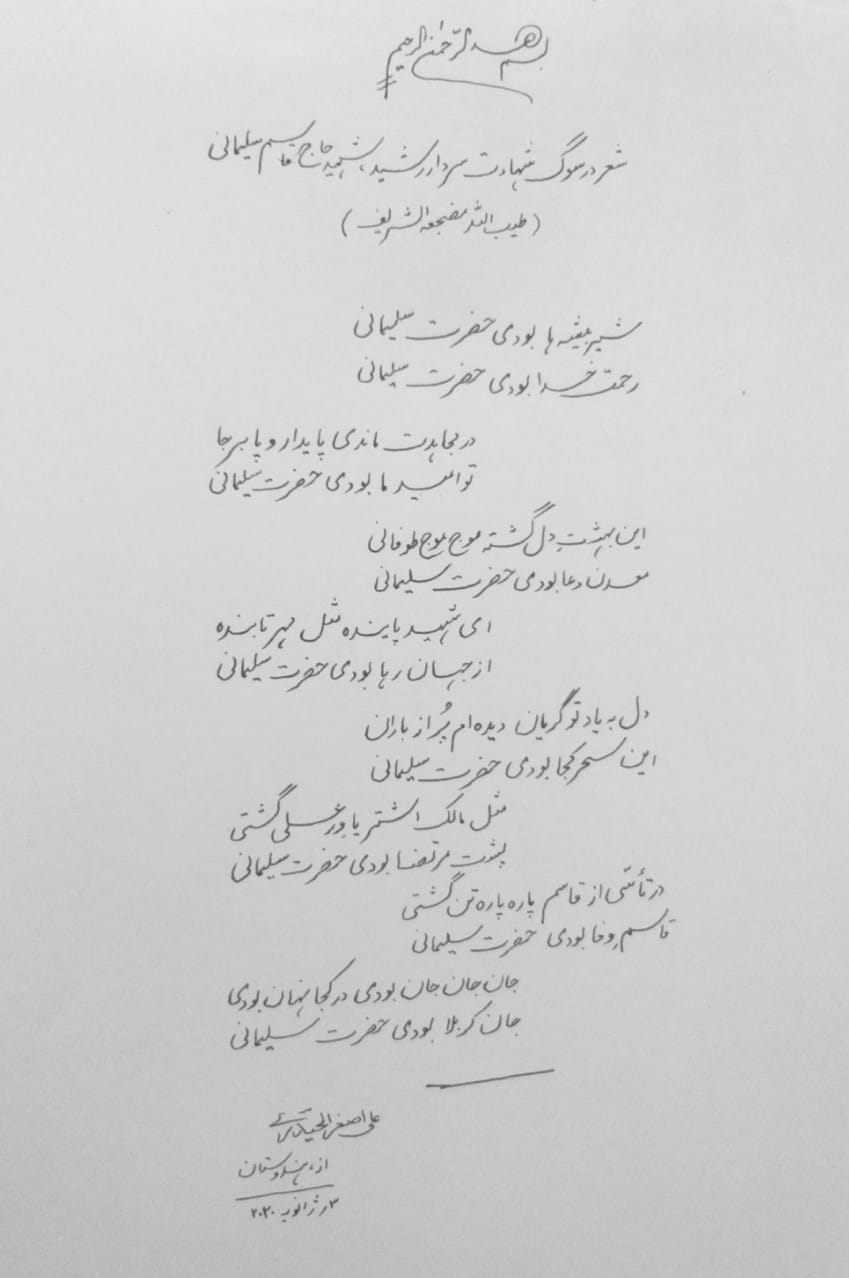 بسم الله الرّحمن الرحیم
شعر در سوگ شهادت سردار رشید، شهید حاج قاسم سلیمانی
(طیب الله مضجعه الشریف)
شیر بیشه ها بودی حضرت سلیمانی
رحمت خدا بودی حضرت سلیمانی
در مجاهدت ماندی پایدار و پا برجا
تو امید ما بودی حضرت سلیمانی
این بهشتِ دل گشته موج موج طوفانی
معدن دعا بودی حضرت سلیمانی
ای شهید پاینده مثل مهر تابنده
از جهان رها بودی حضرت سلیمانی
دل به یاد تو گریان دیده ام پُر از باران
این سحر کجا بودی حضرت سلیمانی
مثل مالک اشتر یاور علی گشتی
پشت مرتضا بودی حضرت سلیمانی
در تأسّی از قاسم پاره پاره تن گشتی
قاسمِ وفا بودی حضرت سلیمانی
جان جان جان بودی در کجا نهان بودی
جان کربلا بودی حضرت سلیمانی
علی اصغر الحیدری
از، هندوستان
۳ ژانویه ۲۰۲۰